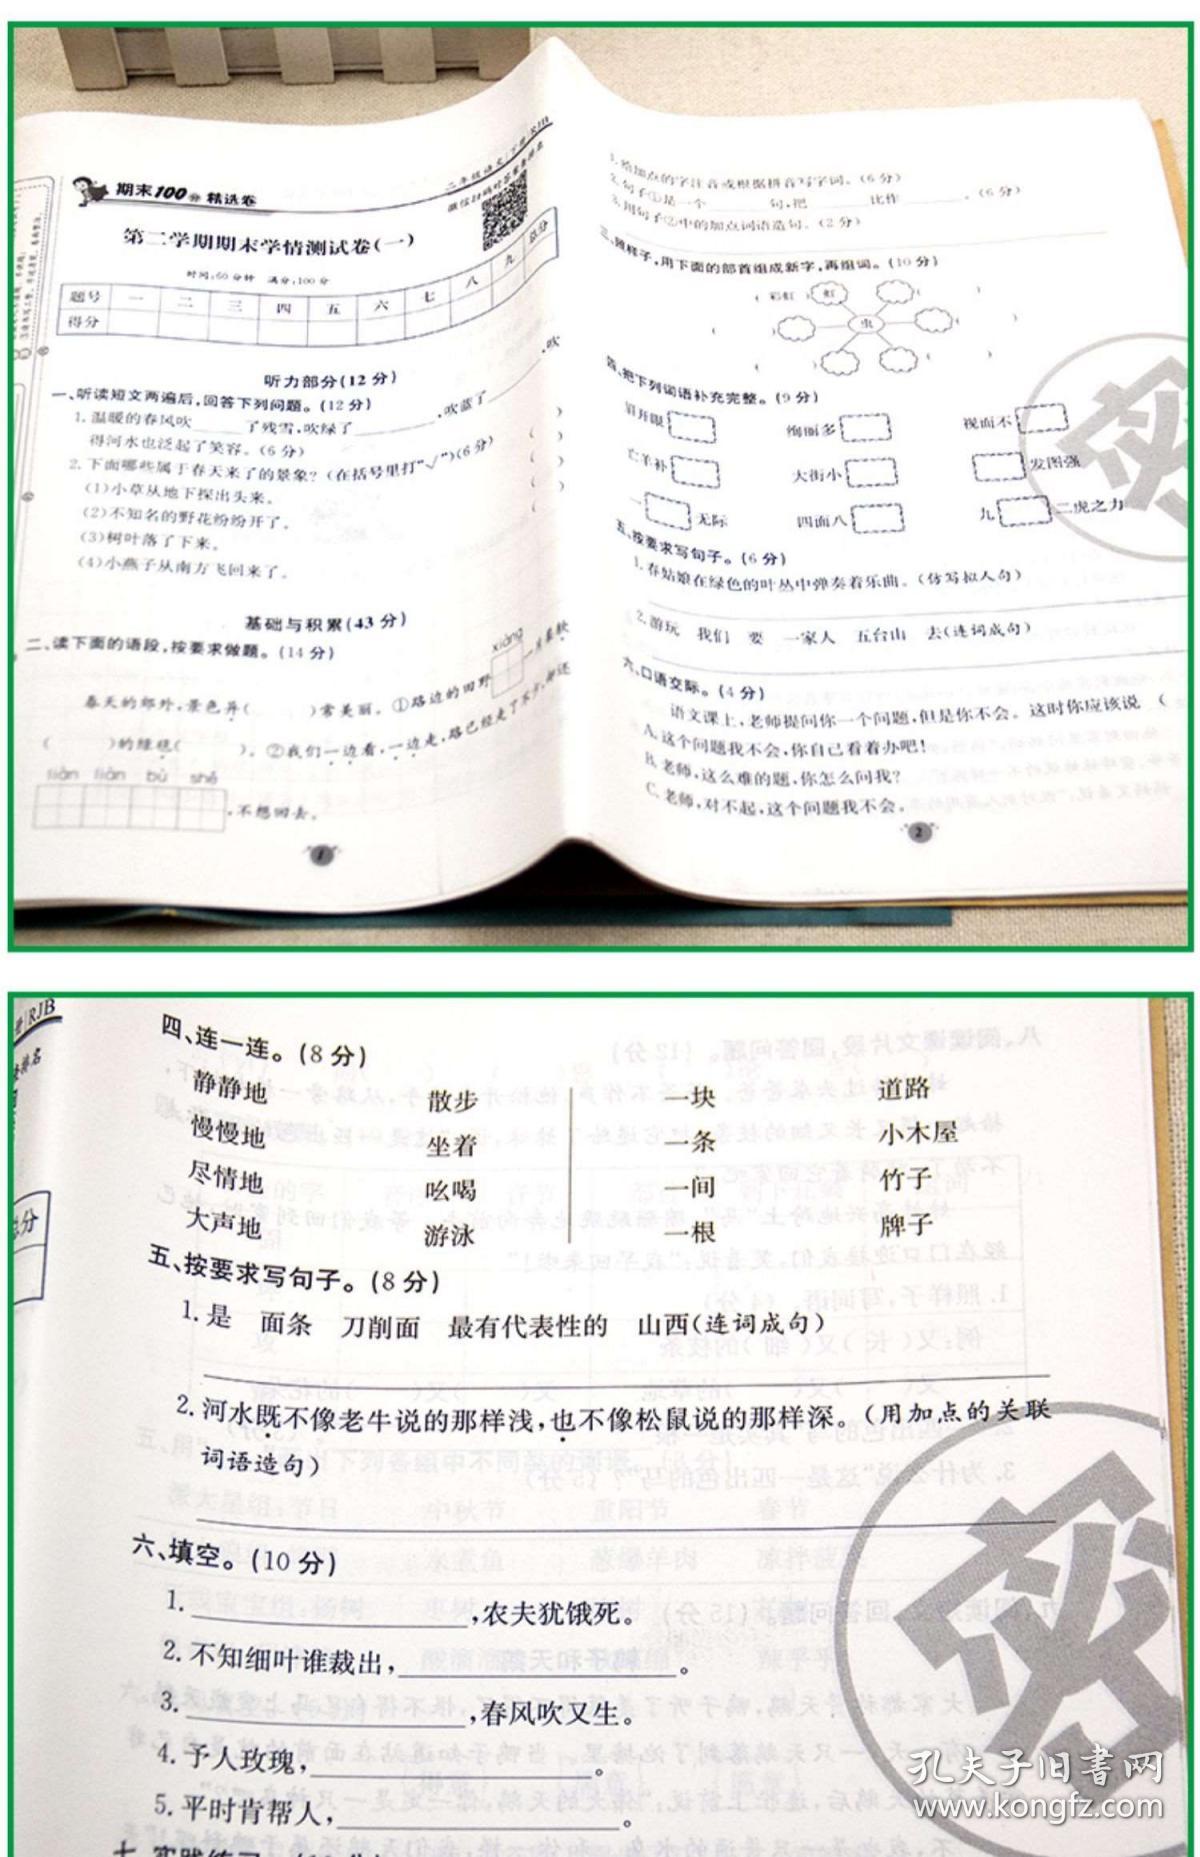 期末100分精选卷
二年级语文 下册 RJB
第二学期期末学情测试卷(一)
时间:60分钟 满分:100分
题号 一 二 三 四 五 六 七 八 九 总分
得分
听力部分(12分)
一、听读短文两遍后,回答下列问题。(12分)
1.温暖的春风吹______了残雪,吹绿了______,吹蓝了______,吹
得河水也泛起了笑容。(6分)
2.下面哪些属于春天来了的景象?(在括号里打“√”)(6分)
(1)小草从地下探出头来。 ( )
(2)不知名的野花纷纷开了。 ( )
(3)树叶落了下来。 ( )
(4)小燕子从南方飞回来了。 ( )
基础与积累(43分)
二、读下面的语段,按要求做题。(14分)
xiàng
春天的郊外,景色异( )常美丽。①路边的田野 一片柔软
( )的绿毯( )。②我们一边看,一边走,路已经走了不少,却还
liàn liàn bù shě
,不想回去。
1
1.给加点的字注音或根据拼音写字词。(6分)
2.句子①是一个______句,把______比作______。(6分)
3.用句子②中的加点词语造句。(2分)
三、照样子,用下面的部首组成新字,再组词。(10分)
(彩虹) 虹
虫
四、把下列词语补充完整。(9分)
眉开眼 绚丽多 视而不
亡羊补 大街小 发图强
一 无际 四面八 九 二虎之力
五、按要求写句子。(6分)
1.春姑娘在绿色的叶丛中弹奏着乐曲。(仿写拟人句)
2.游玩 我们 要 一家人 五台山 去(连词成句)
六、口语交际。(4分)
语文课上,老师提问你一个问题,但是你不会。这时你应该说 (
A.这个问题我不会,你自己看着办吧!
B.老师,这么难的题,你怎么问我?
C.老师,对不起,这个问题我不会。
2
密
册 RJB
总分
四、连一连。(8分)
静静地 散步 一块 道路
慢慢地 坐着 一条 小木屋
尽情地 吆喝 一间 竹子
大声地 游泳 一根 牌子
五、按要求写句子。(8分)
1.是 面条 刀削面 最有代表性的 山西(连词成句)
2.河水既不像老牛说的那样浅,也不像松鼠说的那样深。(用加点的关联
词语造句)
六、填空。(10分)
1.____________,农夫犹饿死。
2.不知细叶谁裁出,____________。
3.____________,春风吹又生。
4.予人玫瑰,____________。
5.平时肯帮人,____________。
密
孔夫子旧书网
www.kongfz.com